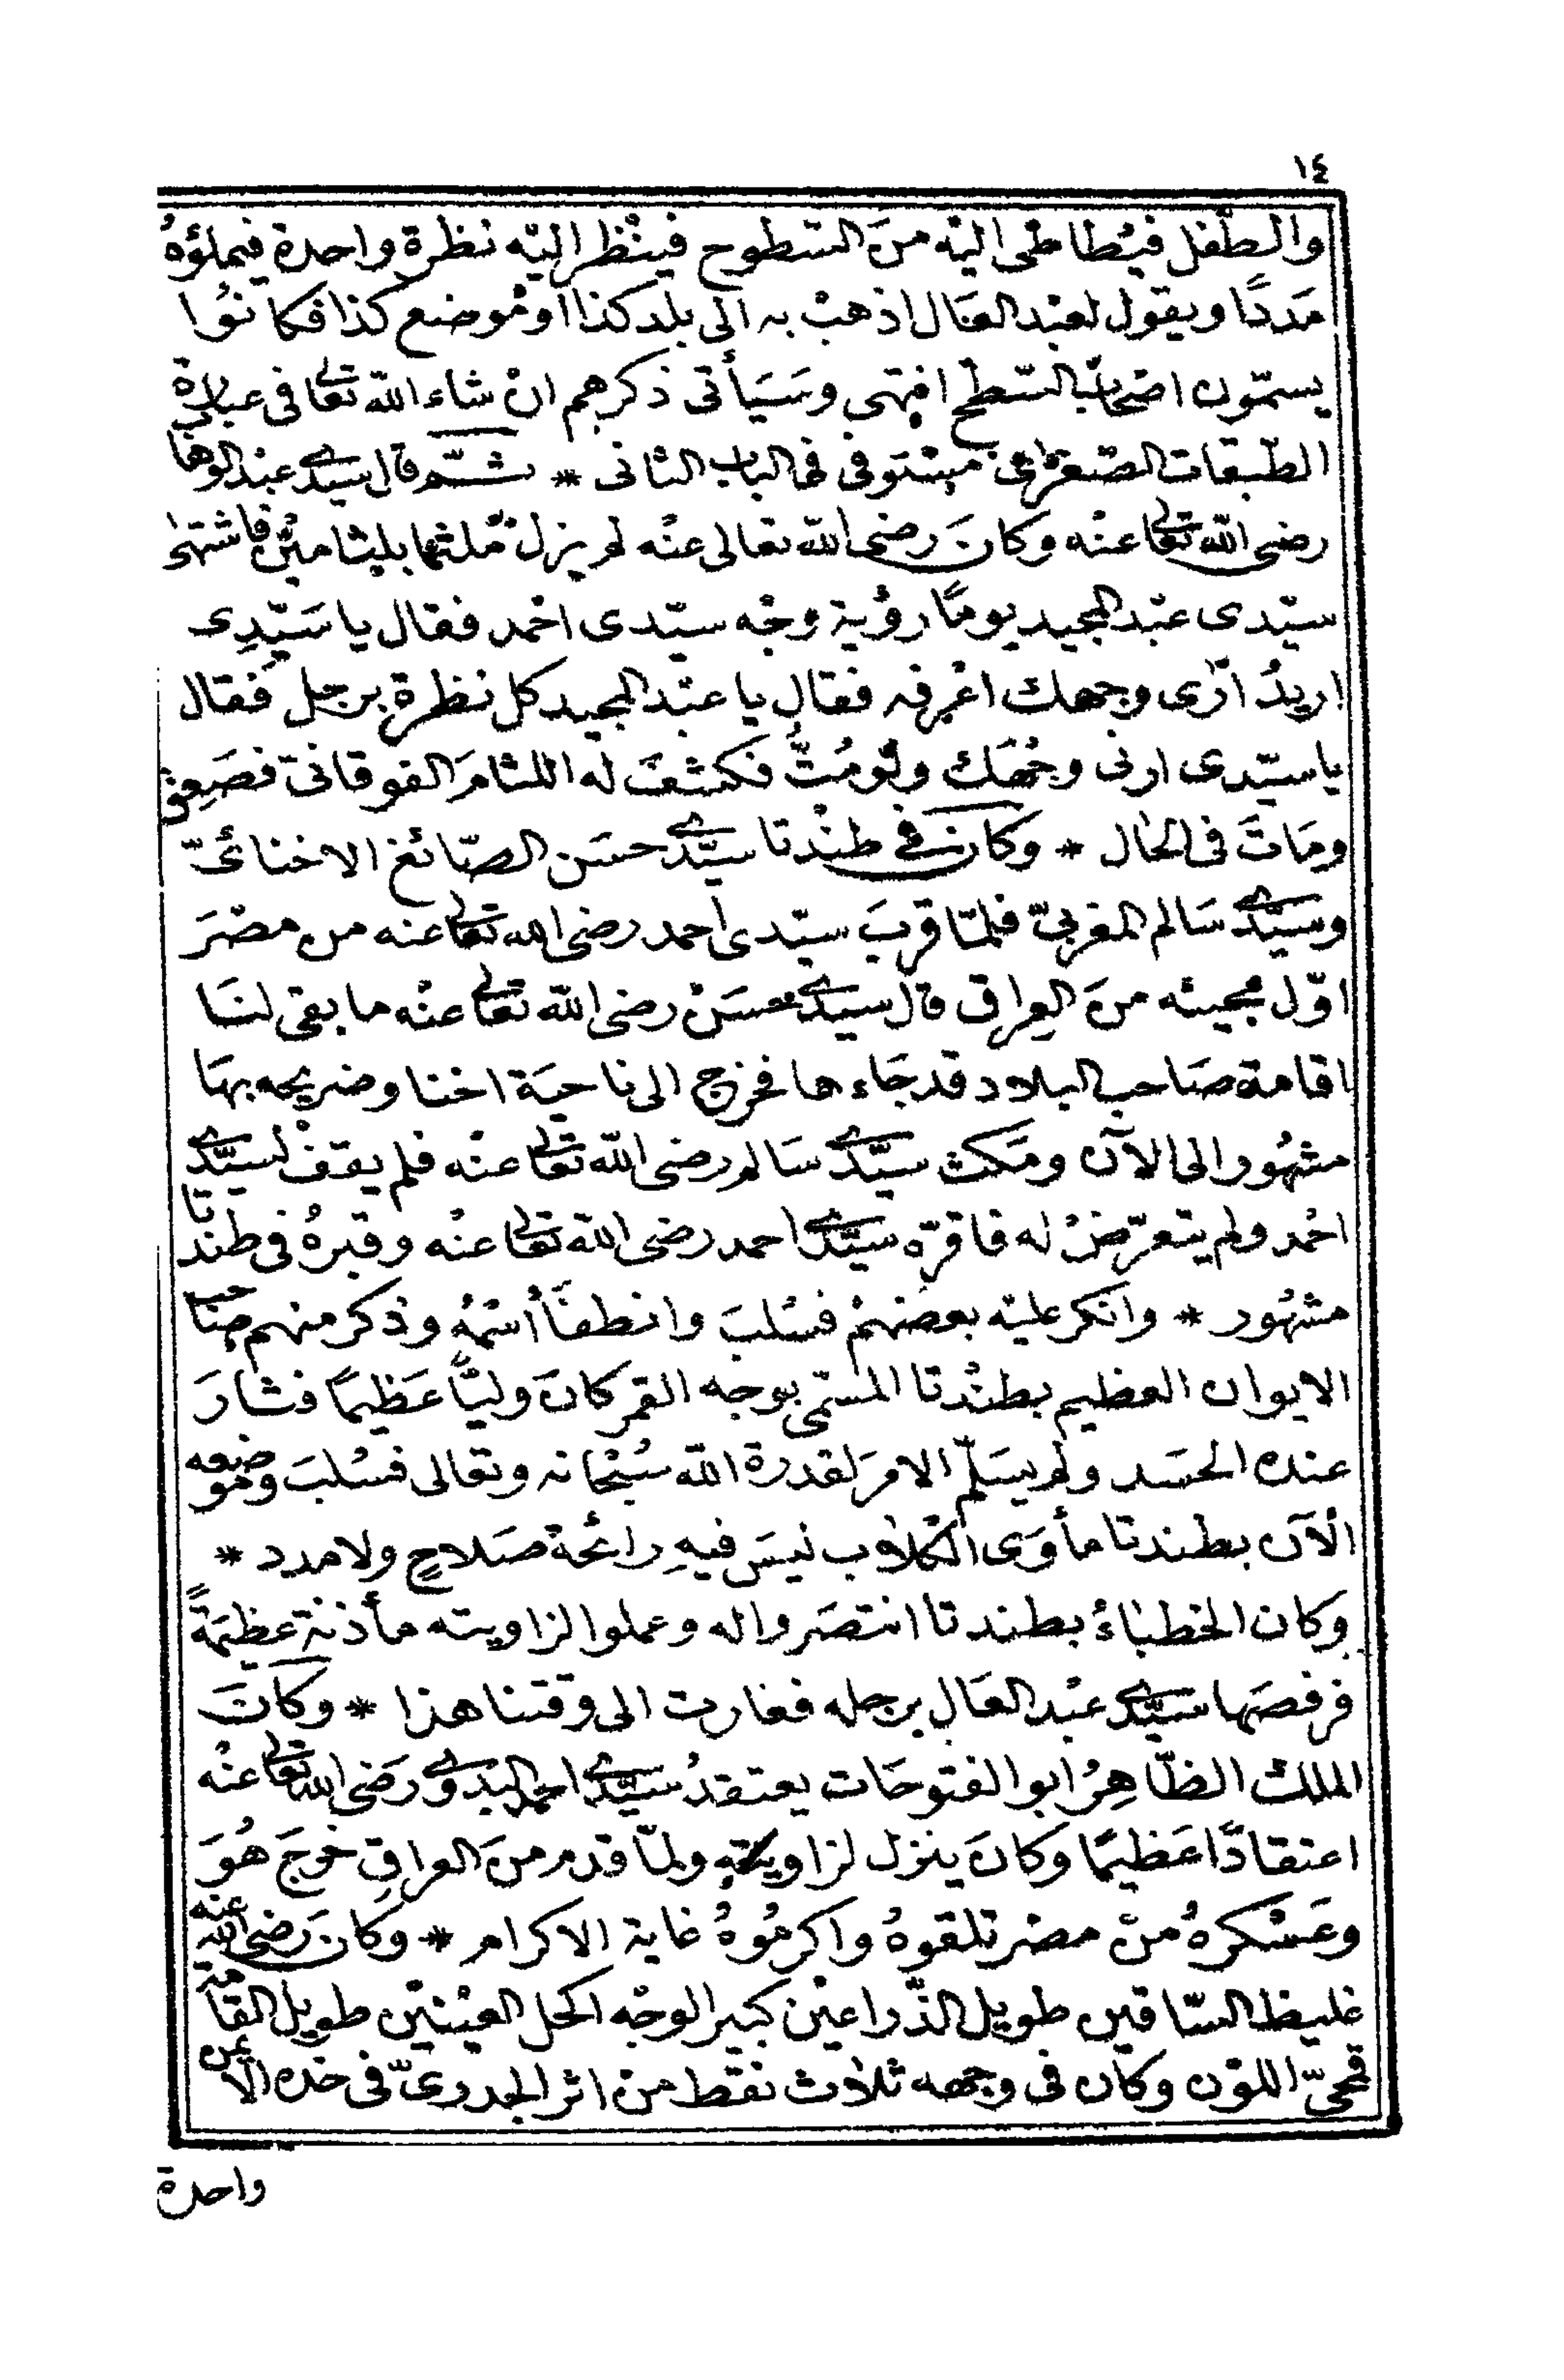 ١٤
والطّفل فيُطاطى اليْه منَ السّطوح فينْظر اليْه نظرة واحدة فيملؤهُ
مَددًا ويقول لعبْد العَال اذهبْ به الى بلد كذا اومْوضع كذا فكانوُا
يسمّون اصْحابَ السّطح انتهى وسَيَأتى ذكرهم انْ شاء الله تعالى فى عبارة
الطّبقات الصّغرٰى مستوفى فى الباب الثانى * ثـــمّ قال سيدى عبد الوهاب
رضى الله تعالى عنْه وكانَ رضى الله تعالى عنْه لم يزل مُلثمًا بلثامينْ فاشتهى
سيّدى عبْد المجيد يومًا رؤْية وجْه سيّدى احْمد فقال يا سَيّدِى
اريدُ أرٰى وجهك اعْرفه فقال يا عبْد المجيد كل نظرة برجل فقال
يا سيّدى ارنى وجْهَك ولوْ مُتُّ فكشفَ له اللثامَ الفوقانىّ فصَعِق
ومَاتَ فى الحال * وكان فى طنْدتا سيّدى حسَن الصّائغ الاخنائىّ
وسيّدى سَالم المغربىّ فلمّا قربَ سيّدى احمد رضى الله تعالى عنه من مصْرَ
اوّل مجيئه منَ العراق قال سيدى حسَنْ رضى الله تعالى عنْه ما بقى لنَا
اقامة صَاحب البلاد قد جَاءها فخرج الى ناحيَة اخنا وضريحه بهَا
مشهُور الى الآن ومَكث سيّدى سَالم رضى الله تعالى عنْه فلم يقفْ لسيّدى
احْمد ولم يتعرّضْ له فاقرّه سيّدى احمد رضى الله تعالى عنْه وقبرهُ فى طندتا
مشهُور * وانكر عليْه بعضهمْ فسُلبَ وانطفَأ اسْمُهُ وذكر منهم صَاحب
الايوان العظيم بطنْدتا المسمّى بوجه القمر كانَ وليًّا عَظيمًا فثارَ
عنده الحسَد ولم يسَلّم الامرَ لقدرة الله سُبْحانه وتعالى فسُلبَ وموضعه
الْآن بطندتا مأوَى الكلاب ليْسَ فيهِ رائحة صَلاحٍ ولا مدد *
وكان الخطباءُ بطندتا انتصَروا له وعملوا لزاويته مأذنة عظيمَةً
فرفصَها سيّدى عبْد العَال برجله فغارت الى وقتنا هذا * وكانَ
الملك الظّاهِرُ ابو الفتوحَات يعتقدُ سيّدى احمد البدوى رَضى الله تعالى عنْه
اعتقادًا عَظيمًا وكانَ ينزل لزاويته ولمّا قدم منَ العراقِ خرجَ هُوَ
وعَسْكرهُ منْ مصْر تلقوهُ واكرمُوهُ غاية الاكرام * وكان رَضى الله عنه
غليظ السّاقين طويل الذّراعيْن كبير الوجْه اكحل العيْنيْن طويل القامة
قمحىّ اللوْن وكان فى وجهه ثلاث نقط منْ اثر الجدرىّ فى خدّه الأيمن
واحدة